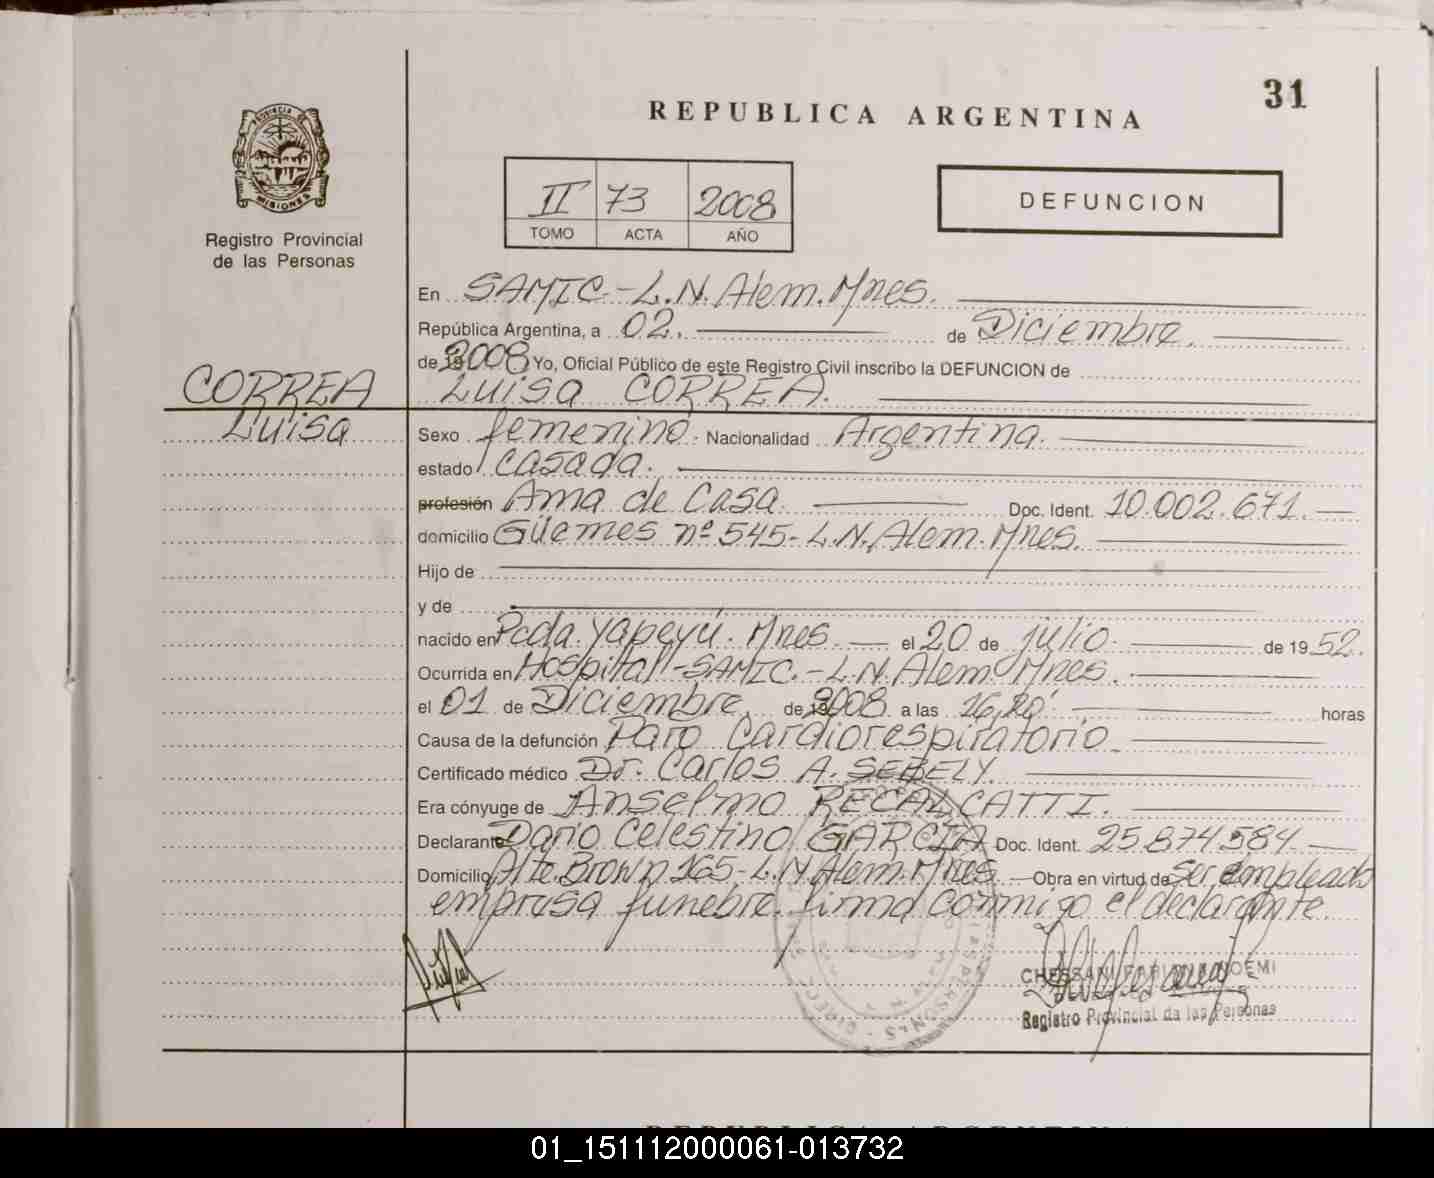 31
REPUBLICA ARGENTINA
PROVINCIA DE
MISIONES
Registro Provincial
de las Personas
II 73 2008
TOMO ACTA AÑO
DEFUNCION
En SAMIC.-L.N.Alem.Mnes.
República Argentina, a 02. de Diciembre.
de 2008 Yo, Oficial Público de este Registro Civil inscribo la DEFUNCION de
CORREA
Luisa
Luisa CORREA.
Sexo femenino. Nacionalidad Argentina.
estado casada.
profesión Ama de Casa Doc. Ident. 10.002.671.
domicilio Güemes nº 545-L.N.Alem.Mnes.
Hijo de
y de
nacido en Pcda.Yapeyú. Mnes. el 20 de julio de 1952.
Ocurrida en Hospital-SAMIC.-L.N.Alem Mnes.
el 01 de Diciembre. de 2008 a las 16,20' horas
Causa de la defunción Paro Cardiorespiratorio
Certificado médico Dr. Carlos A. SEBELY.
Era cónyuge de Anselmo RECALCATTI.
Declarante Dario Celestino GARCIA Doc. Ident. 25.874.584.
Domicilio Alte.Brown 165-L.N.Alem.Mnes. Obra en virtud de Ser empleado
empresa funebre. firma conmigo el declarante.
NOEMI
Registro Provincial de las Personas
REPUBLICA ARGENTINA
01_151112000061-013732